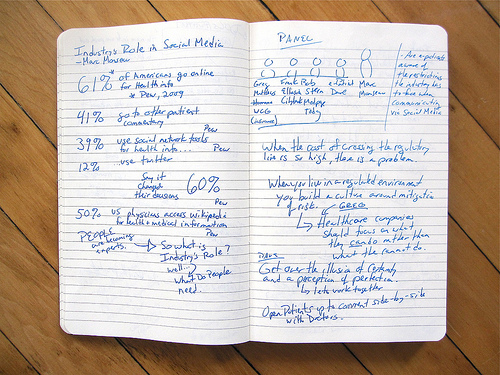 Industry's Role in Social Media
- Marc Monseau
61% of Americans go online
for health info
* Pew, 2009
41% go to other patient
commentary
Pew
39% use social network tools
for health info...
Pew
12% ...use twitter
Say it
changed
their decisions
60%
Pew
50% US physicians access Wikipedia
for health + medical information
Pew
PEOPLE
are becoming
experts.
So what is
Industry's Role?
well...
What Do People
need.
PANEL
Greg Frank Rob Marc
Ellen Stern Dave Monseau
UCG Today
- Are patients
aware of
the restrictions
the industry has
to them when
communicating
via Social Media
When the cost of crossing the regulatory
line is so high, there is a problem.
When you live in a regulated environment
you build a culture around mitigation
of risk. GREG
Healthcare companies
should focus on what
they can do rather than
what the cannot do.
Get over the illusion of certainty
and a perception of perfection.
let's work together
Open Patients up to content side-by-side
with Doctors.